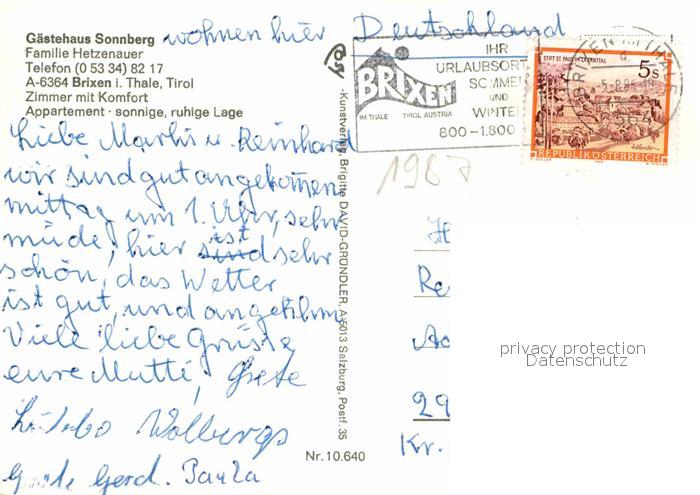 Gästehaus Sonnberg wohnen hier Deutschland
Familie Hetzenauer
Telefon (0 53 34) 82 17
A-6364 Brixen i. Thale, Tirol
Zimmer mit Komfort
Appartement · sonnige, ruhige Lage
Liebe Martin u. Reinhard
wir sind gut angekommen
mittag um 1. Uhr, sehr
müde, hier ist sehr
schön, das Wetter
ist gut, und angenehm
Viele liebe Grüße
eure Mutti, Grete
Wolbergs
Gerd. Paula
Cosy
-Kunstverlag, Brigitte DAVID-GRÜNDLER, A-5013 Salzburg, Postf. 35
Nr. 10.640
IHR
URLAUBSORT
SOMMER
UND
WINTER
BRIXEN
IM THALE TIROL AUSTRIA
800-1.800
STIFT ST. PAUL IM LAVANTTAL
5 S
REPUBLIK ÖSTERREICH
1987
Re
29
Kr.
privacy protection
Datenschutz